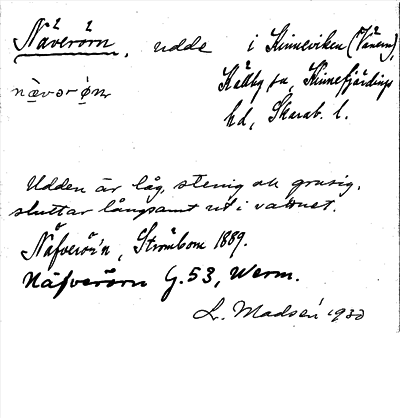 Näverörn, udde i Kinneviken (Vänern),
Källby sn, Kinnefjärdings
hd, Skarab. l.
Udden är låg, stenig och grusig,
sluttar långsamt ut i vattnet.
Näfverör'n, Strömbom 1889.
Näfverörn G.53, Werm.
L. Madsén 1930